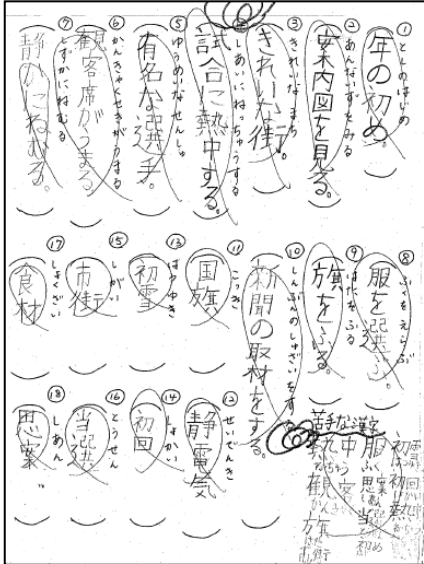 ①
としのはじめ
年の初め。
②
あんないずをみる
案内図を見る。
③
きれいなまち
きれいな街。
④
しあいにねっちゅうする
試合に熱中する。
⑤
ゆうめいなせんしゅ
有名な選手。
⑥
かんきゃくせきがうまる
観客席がうまる。
⑦
しずかにねむる
静かにねむる。
⑧
ふくをえらぶ
服を選ぶ。
⑨
はたをふる
旗をふる。
⑩
しんぶんのしゅざいをする
新聞の取材をする。
⑪
こっき
国旗
⑫
せいでんき
静電気
⑬
はつゆき
初雪
⑭
しょかい
初回
⑮
しがい
市街
⑯
とうせん
当選
⑰
しょくざい
食材
⑱
しあん
思案。
苦手な漢字